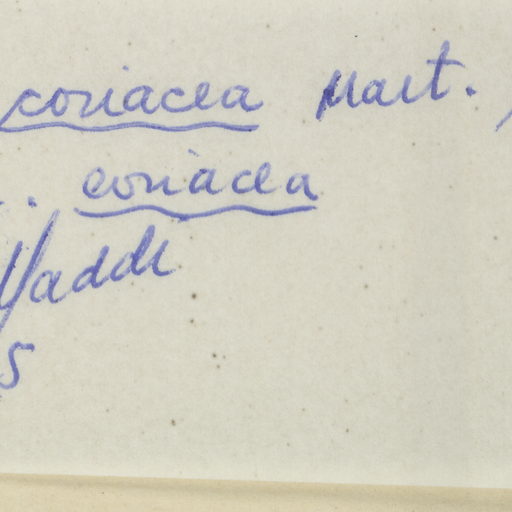 coriacea Mart.
. coriacea
Vaddi
5